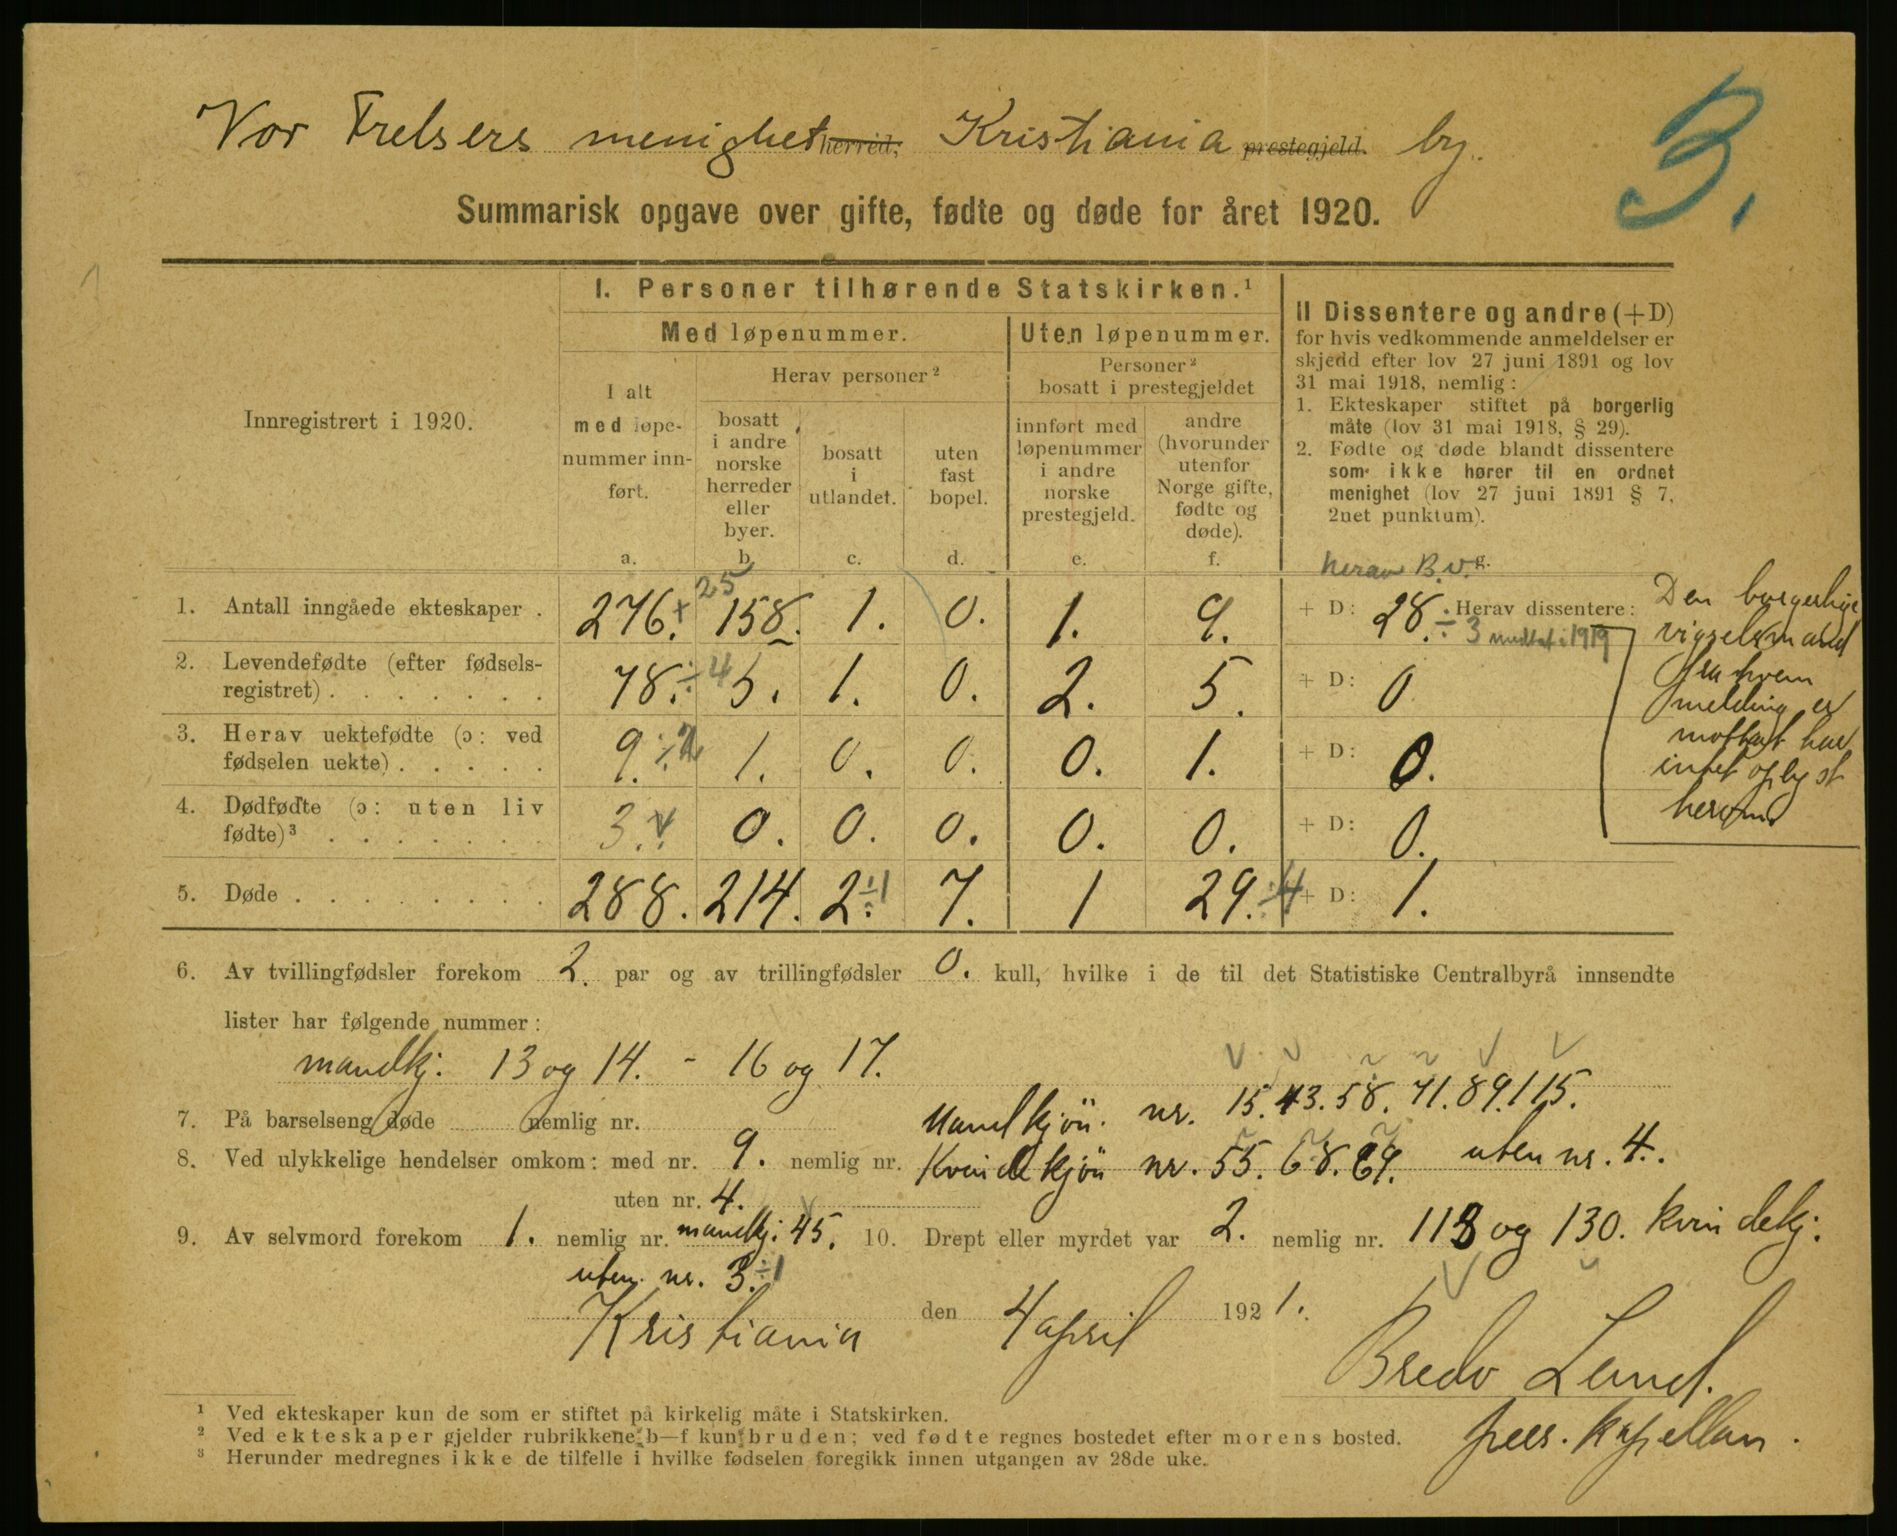 Vor Frelsers menighet herred, Kristiania prestegjeld. by.
3.
Summarisk opgave over gifte, fødte og døde for året 1920.
Innregistrert i 1920.
I. Personer tilhørende Statskirken.¹
Med løpenummer.
Uten løpenummer.
I alt med løpe-nummer inn-ført.
Herav personer ²
Personer ² bosatt i prestegjeldet
bosatt i andre norske herreder eller byer.
bosatt i utlandet.
uten fast bopel.
innført med løpenummer i andre norske prestegjeld.
andre (hvorunder utenfor Norge gifte, fødte og døde).
a. b. c. d. e. f. g.
II Dissentere og andre (+D)
for hvis vedkommende anmeldelser er
skjedd efter lov 27 juni 1891 og lov
31 mai 1918, nemlig:
1. Ekteskaper stiftet på borgerlig
måte (lov 31 mai 1918, § 29).
2. Fødte og døde blandt dissentere
som ikke hører til en ordnet
menighet (lov 27 juni 1891 § 7,
2net punktum).
herav B.v.
1. Antall inngåede ekteskaper . 276.+ 25 158. 1. 0. 1. 9. + D: 28. ÷ Herav dissentere:
3 mottat i 1919
2. Levendefødte (efter fødsels-
registret) . . . . . . . 78. ÷4 5. 1. 0. 2. 5. + D: 0
3. Herav uektefødte (ɔ: ved
fødselen uekte) . . . . . 9. ÷2 1. 0. 0. 0. 1. + D: 0.
4. Dødfødte (ɔ: uten liv
fødte)³ . . . . . . . 3. v 0. 0. 0. 0. 0. + D: 0.
5. Døde . . . . . . . . 288. 214. 2. ÷1 7. 1 29. ÷4 + D: 1.
Den borgerlige
vigselsmand
fra hvem
melding er
mottat har
intet oplyst
herom.
6. Av tvillingfødsler forekom 2. par og av trillingfødsler 0. kull, hvilke i de til det Statistiske Centralbyrå innsendte
lister har følgende nummer:
mandkj. 13 og 14. - 16 og 17.
7. På barselseng døde nemlig nr.
Mandkjön. nr. 15. 43. 58. 71. 89. 115.
8. Ved ulykkelige hendelser omkom: med nr. 9. nemlig nr. Kvindekjön nr. 55. 68. 69. uten nr. 4.
uten nr. 4.
9. Av selvmord forekom 1. nemlig nr. mandkj. 45. 10. Drept eller myrdet var 2. nemlig nr. 113 og 130. kvindekj:
uten nr. 3. ÷1
Kristiania den 4 april 1921.
Bredo Lund.
pers. kapellan.
¹ Ved ekteskaper kun de som er stiftet på kirkelig måte i Statskirken.
² Ved ekteskaper gjelder rubrikkene b—f kun bruden; ved fødte regnes bostedet efter morens bosted.
³ Herunder medregnes ikke de tilfelle i hvilke fødselen foregikk innen utgangen av 28de uke.